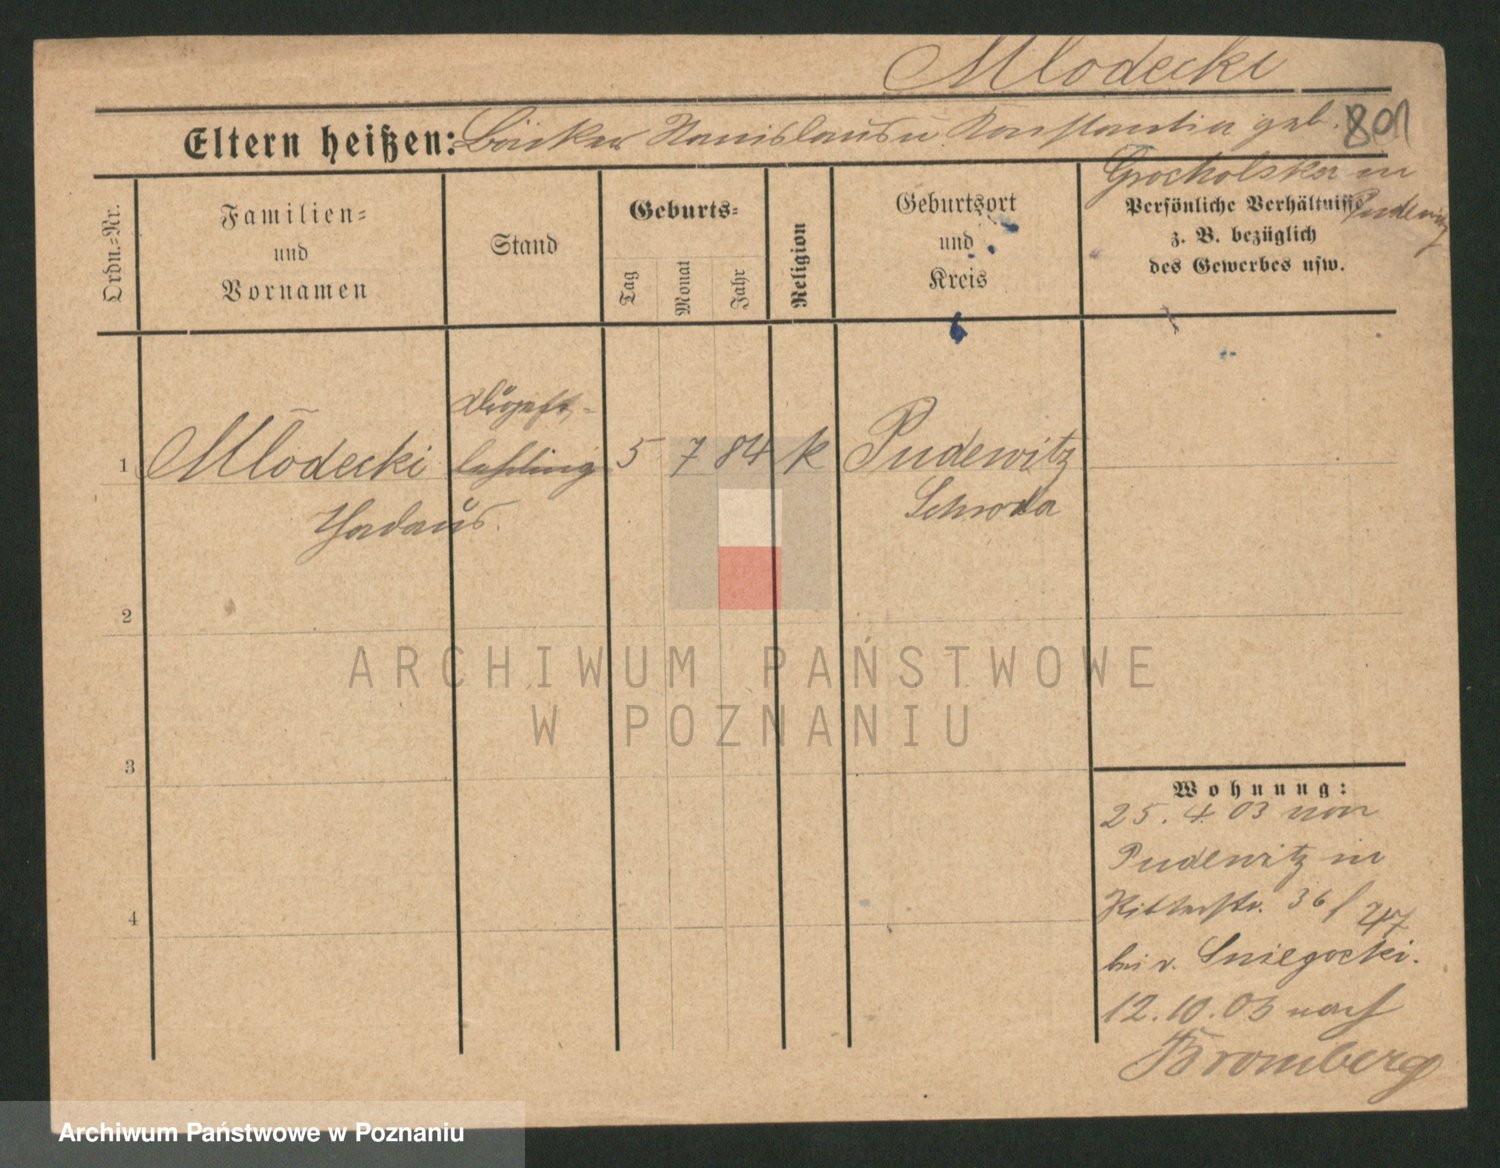 Mlodecki
Eltern heißen: Bäcker Stanislaus u Konstantia geb. 801
Grocholska in
Pudewitz
Ordn.=Nr.
Familien=
und
Vornamen
Stand
Geburts=
Tag
Monat
Jahr
Religion
Geburtsort
und
Kreis
Persönliche Verhältnisse
z. B. bezüglich
des Gewerbes usw.
1 Mlodecki lehrling 5 7 84 k Pudewitz
Thadäus. Schroda
2
3
4
Wohnung:
25. 4. 03 von
Pudewitz in
Ritterstr. 36 / 247
bei v. Sniegocki.
12.10.03 nach
Bromberg
ARCHIWUM PAŃSTWOWE
W POZNANIU
Archiwum Państwowe w Poznaniu